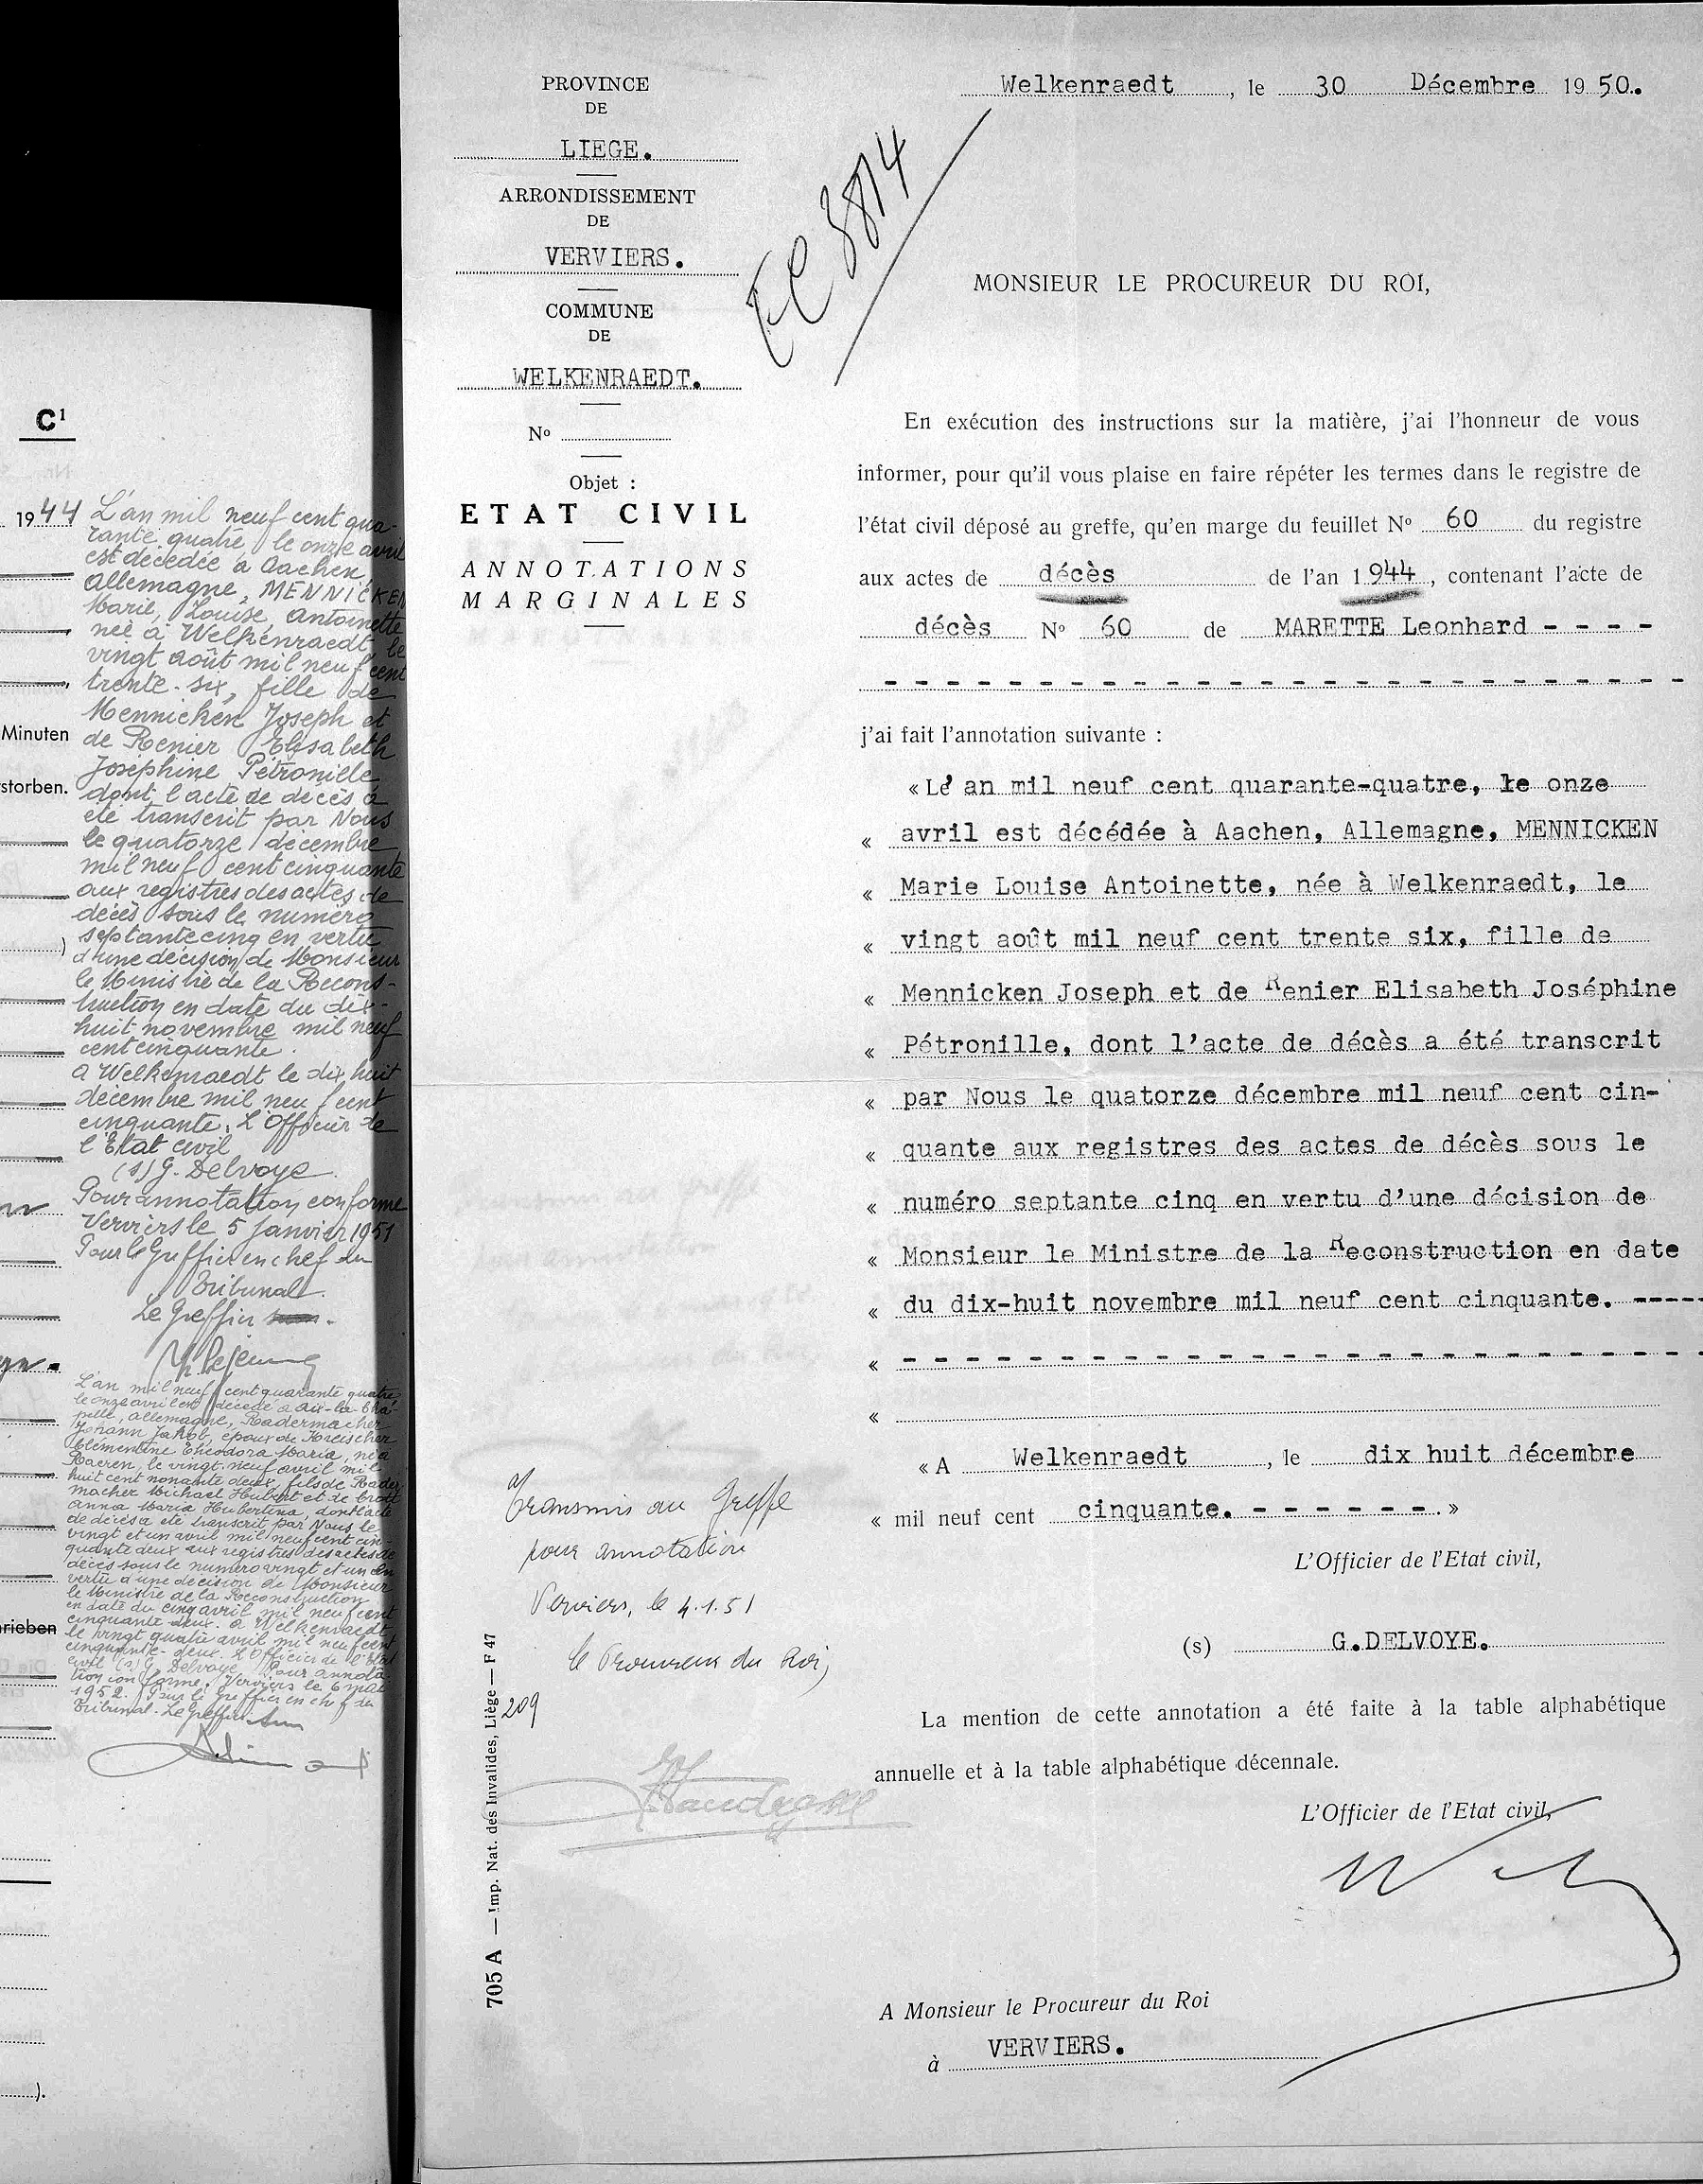 C¹
1944 L'an mil neuf cent qua-
rante quatre, le onze avril
est décédée à Aachen,
Allemagne, MENNICKEN
Marie, Louise, Antoinette
née à Welkenraedt, le
vingt août mil neuf cent
trente-six, fille de
Mennicken Joseph et
Minuten
de Renier Elisabeth
Joséphine Pétronille
storben.
dont l'acte de décès a
été transcrit par Nous
le quatorze décembre
mil neuf cent cinquante
aux registres des actes de
décès sous le numéro
septante cinq en vertu
)
d'une décision de Monsieur
le Ministre de la Recons-
truction en date du dix-
huit novembre mil neuf
cent cinquante.
A Welkenraedt le dix huit
décembre mil neuf cent
cinquante. L'Officier de
l'Etat civil
(s) G. Delvoye.
Pour annotation conforme
Verviers le 5 Janvier 1951
Pour le Greffier en chef du
Tribunal.
Le Greffier
L'an mil neuf cent quarante quatre
le onze avril est décédé à Aix-la-Cha-
pelle, Allemagne, Radermacher
Johann Jakob, époux de
Clémentine Théodora Maria, né à
Raeren, le vingt-neuf avril mil
huit cent nonante deux, fils de Rader
macher Michael Hubert et de
Anna Maria Hubertina, dont l'acte
de décès a été transcrit par Nous le
vingt et un avril mil neuf cent cin-
quante deux aux registres des actes de
décès sous le numéro vingt et un en
vertu d'une décision de Monsieur
le Ministre de la Reconstruction
en date du cinq avril mil neuf cent
cinquante-deux. A Welkenraedt,
rieben
le vingt quatre avril mil neuf cent
cinquante-deux. L'Officier de l'Etat
civil (s) G. Delvoye. Pour annota-
tion conforme. Verviers le 6 mai
1952. Pour le Greffier en chef du
Tribunal. Le Greffier
).
PROVINCE
DE
LIEGE.
ARRONDISSEMENT
DE
VERVIERS.
COMMUNE
DE
WELKENRAEDT.
Nº
Objet :
ETAT CIVIL
ANNOTATIONS
MARGINALES
EC 3814
Welkenraedt, le 30 Décembre 1950.
MONSIEUR LE PROCUREUR DU ROI,
En exécution des instructions sur la matière, j'ai l'honneur de vous
informer, pour qu'il vous plaise en faire répéter les termes dans le registre de
l'état civil déposé au greffe, qu'en marge du feuillet Nº 60 du registre
aux actes de décès de l'an 1944, contenant l'acte de
décès Nº 60 de MARETTE Leonhard - - - -
- - - - - - - - - - - - - - - - - - - - - - - - - -
j'ai fait l'annotation suivante :
« L' an mil neuf cent quarante-quatre, le onze
« avril est décédée à Aachen, Allemagne, MENNICKEN
« Marie Louise Antoinette, née à Welkenraedt, le
« vingt août mil neuf cent trente six, fille de
« Mennicken Joseph et de Renier Elisabeth Joséphine
« Pétronille, dont l'acte de décès a été transcrit
« par Nous le quatorze décembre mil neuf cent cin-
« quante aux registres des actes de décès sous le
« numéro septante cinq en vertu d'une décision de
« Monsieur le Ministre de la Reconstruction en date
« du dix-huit novembre mil neuf cent cinquante. -----
« - - - - - - - - - - - - - - - - - - - - - - - - -
«
« A Welkenraedt, le dix huit décembre
« mil neuf cent cinquante. - - - - - - - . »
L'Officier de l'Etat civil,
(s) G.DELVOYE.
La mention de cette annotation a été faite à la table alphabétique
annuelle et à la table alphabétique décennale.
L'Officier de l'Etat civil,
A Monsieur le Procureur du Roi
à VERVIERS.
Transmis au Greffe
pour annotation
Verviers, le 4.1.51
le Procureur du Roi,
209
705 A — Imp. Nat. des Invalides, Liège — F 47